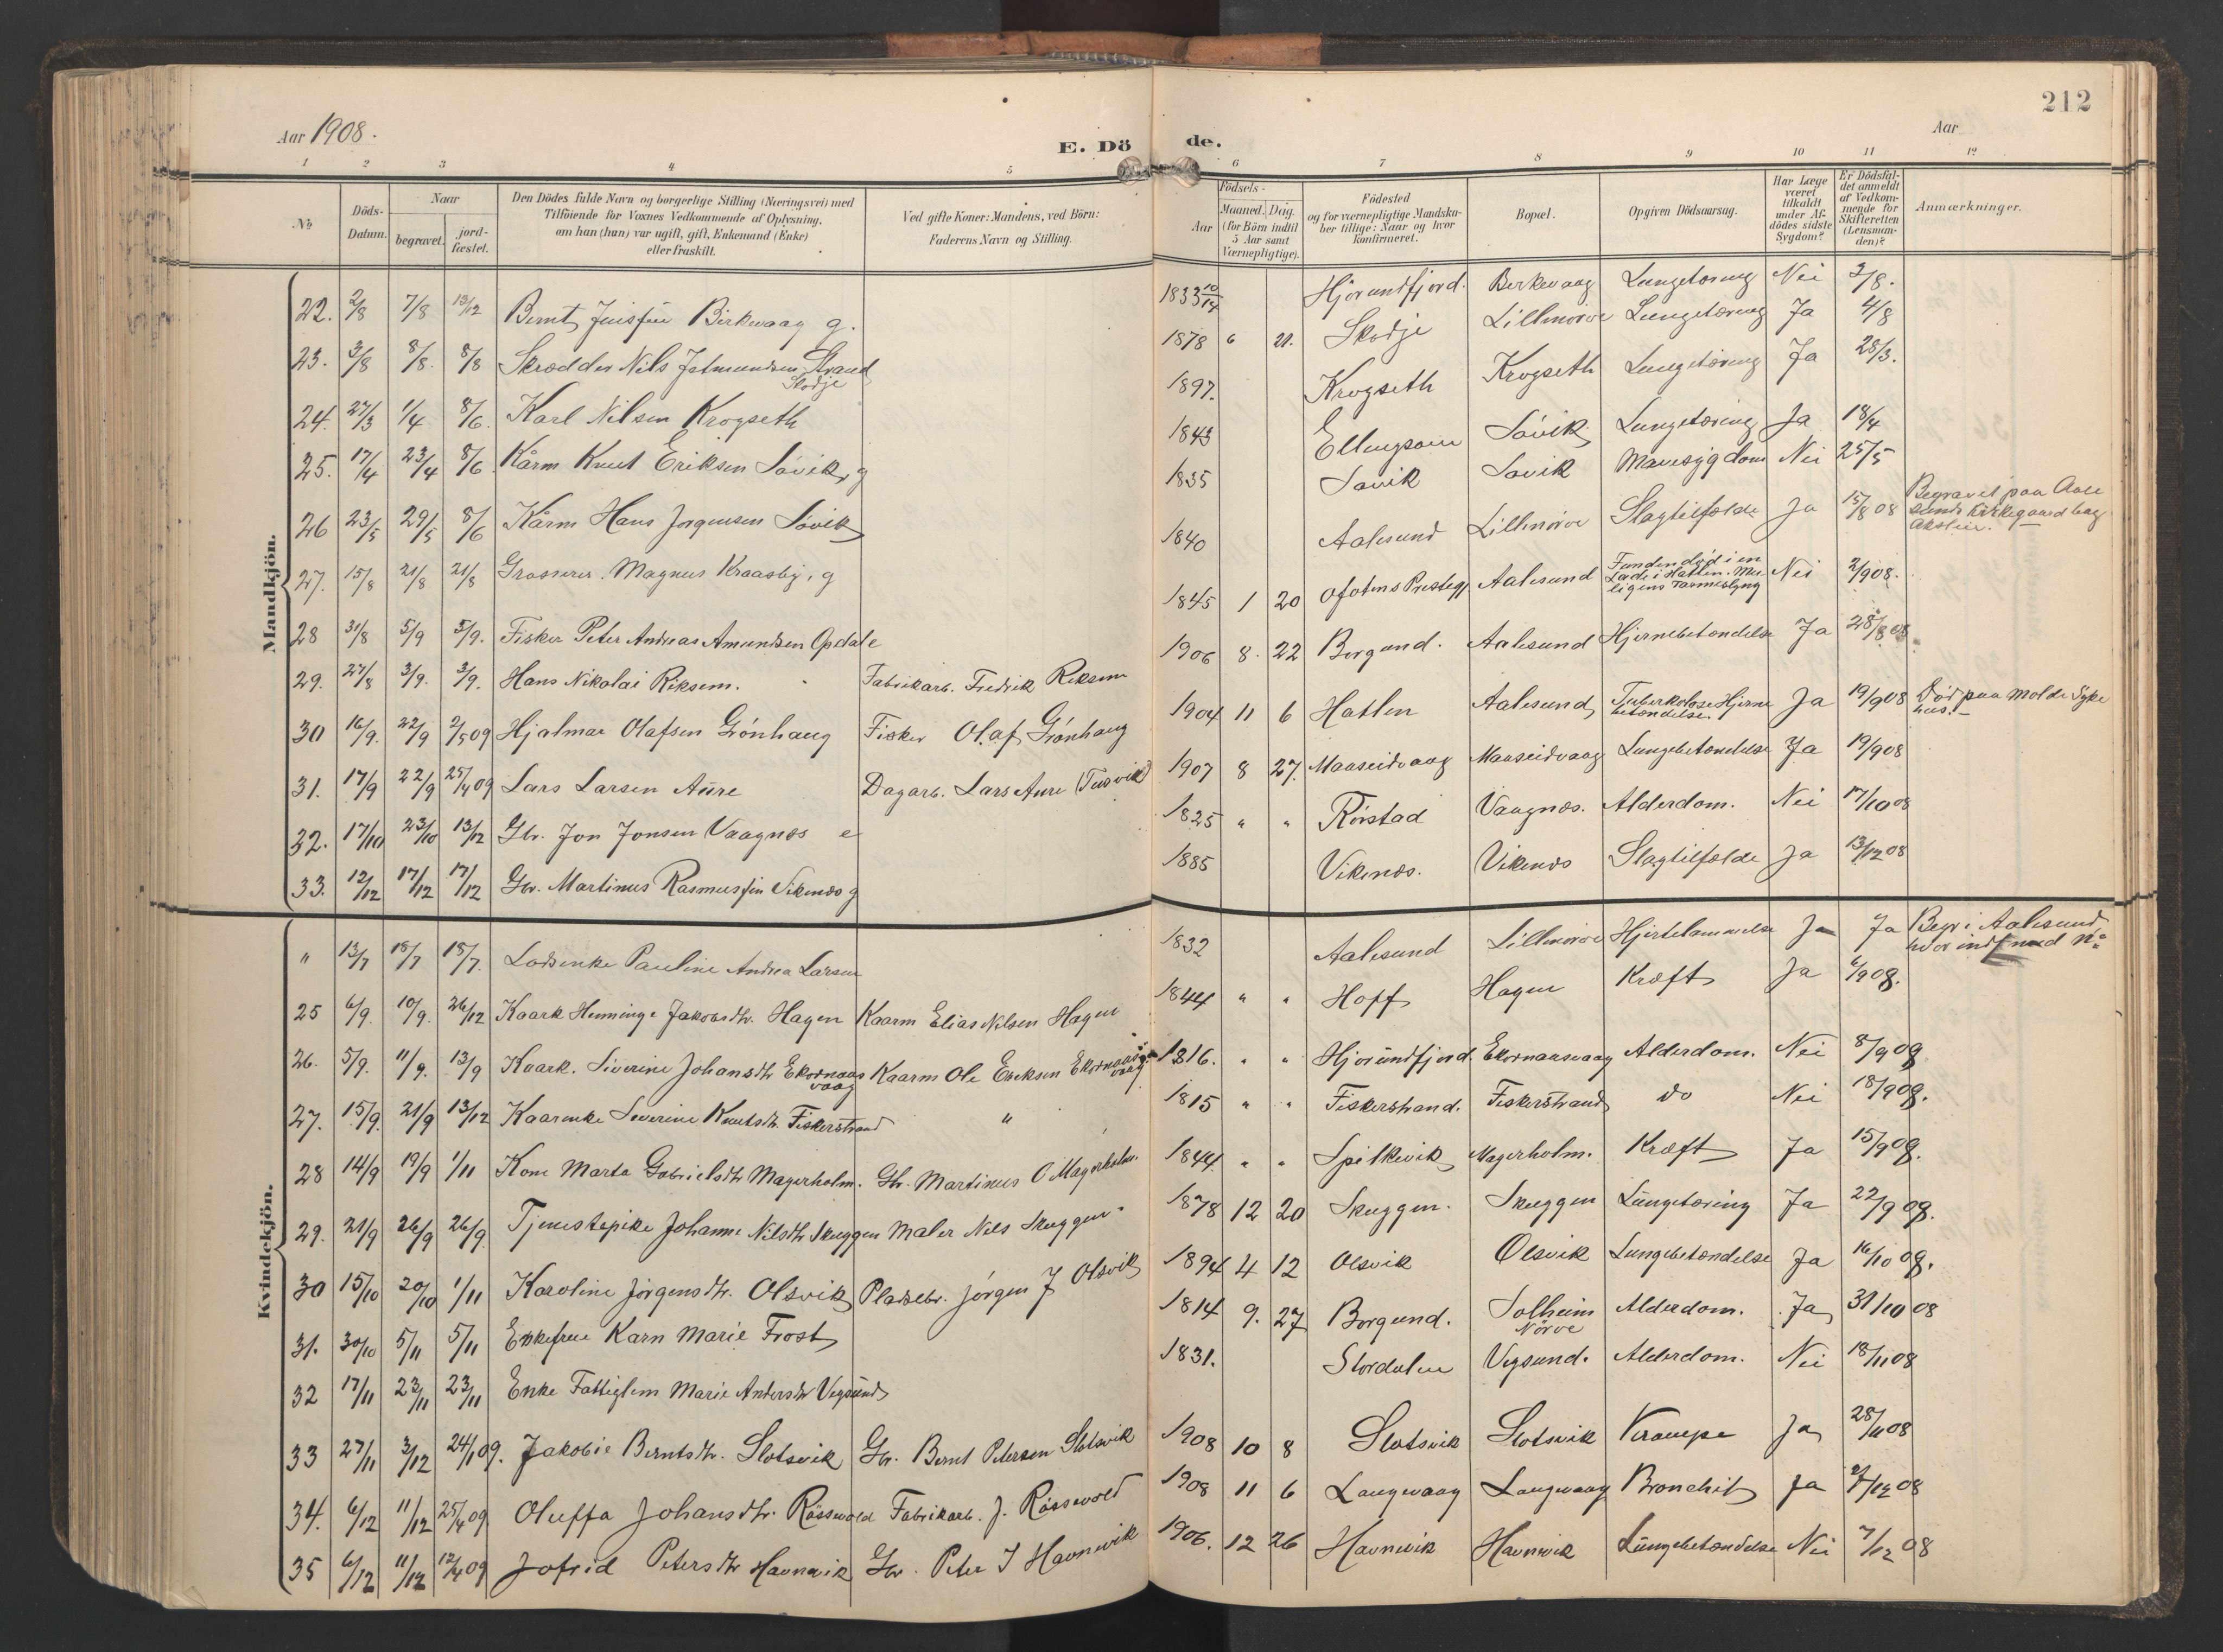 212
Aar 1908.
E. Dö de.
Aar
1 2 3 4 5 6 7 8 9 10 11 12
№
Döds-Datum.
Naar
begravet.
jordfæstet.
Den Dödes fulde Navn og borgerlige Stilling (Næringsvei) med
Tilföiende for Voxnes Vedkommende af Oplysning,
om han (hun) var ugift, gift, Enkemand (Enke)
eller fraskilt.
Ved gifte Koner: Mandens, ved Börn:
Faderens Navn og Stilling.
Födsels-
Aar
Maaned. Dag.
(for Börn indtil
5 Aar samt
Værnepligtige).
Födested
og for værnepligtige Mandskaber tillige: Naar og hvor
konfirmeret.
Bopæl.
Opgiven Dödsaarsag.
Har Læge
været
tilkaldt
under Afdödes sidste
Sygdom?
Er Dödsfaldet anmeldt
af Vedkommende for
Skifteretten
(Lensmanden)?
Anmærkninger.
Mandkjön.
22. 2/8 7/8 13/12 Bernt Birkevaag g. 1833 Hjörundfjord. Berkevaag Lungetæring Nei 3/8.
23. 3/8 8/8. 8/8 Skrædder Nils Strand Skodje 1878 6 21. Skodje Lillenörve Lungetæring Ja 4/8
24. 27/3 1/4 8/6. Karl Nilsen Krogseth 1897. Krogseth Krogseth Lungetæring Ja 28/3.
25. 17/4 23/4 8/6 Kårm Knut Eriksen Sövik, g 1843 Sövik Lungetæring Ja 18/4
26 23/5 29/5 8/6 Kårm Hans Jørgensen Sövik 1835 Sövik Sövik Mavesygdom Nei 25/5
27. 15/8 21/8 21/8 Grosserer. Magnus Kraasby, g 1840 Aalesund Lillenörve Slagtilfælde Ja 15/8 08 Begravet paa Aalesunds Kirkegaard
28 31/8 5/9 5/9. Fisker Peter Andreas Amundsen Opdal e 1845 1 20 Ofotens Prestegj Aalesund Funden död i en Nei 2/9 08.
29. 27/8 3/9. 3/9. Hans Nikolai Riksem. Fabrikarb. Fredrik Reksem 1906 8. 22 Borgund. Aalesund Hjernebetændelse Ja 28/8 08
30 16/9. 22/9 2/5 09 Hjalmar Olafsen Grönhaug Fisker Olaf Grönhaug 1904 11 6 Hatlen Aalesund Tuberkuløse Hjernebetændelse Ja 19/9 08 Död paa Molde Sygehus.
31. 17/9 22/9 25/4 09 Lars Larsen Aure Dagarb. Lars Aure (Tusvik) 1907 8 27. Maaseidvaag Maaseidvaag Lungebetændelse Ja 19/9 08
32. 17/10 23/10 13/12 Gbr. Jon Jonsen Vaagnæs e 1825 " " Rörstad Vaagnæs. Alderdom. Nei 17/10 08
33. 12/12 17/12 17/12 Gbr. Martinus Rasmussen Vikenæs g 1885 Vikenæs. Vikenæs Slagtilfælde Ja 13/12 08
Kvindekjön.
" 13/7 18/7 18/7. Lodsenke Pauline Andrea Larsen 1832 Aalesund Lillenörve Hjertelammelse Ja Ja Begr i Aalesund
25 6/9. 10/9. 26/12 Kaark Henninge Jakobsdtr. Hagen Kaarm Elias Nilsen Hagen 1844 " " Hoff Hagen Kræft Ja 6/9 08.
26. 5/9. 11/9. 13/9 Kaark. Siverine Johansdtr Ekornaasvaag Kaarm Ole Ekornaasvaag 1816. " " Hjörundfjord. Ekornaasvaag Alderdom. Nei 8/9 08
27. 15/9. 21/9 13/12 Kaarenke Severine Knutsdtr. Fiskerstrand " 1815 " " Fiskerstrand. Fiskerstrand do Nei 18/9 08.
28 14/9 19/9 1/11 Kone Marta Gabrielsdtr Magerholm. Gbr. Martinus O Magerholm. 1844 " " Spilkevik Magerholm. Kræft Ja 15/9 08.
29. 21/9 26/9 26/9. Tjenestepike Johanne Nilsdtr Skuggen Maler Nils Skuggen. 1878 12 20 Skuggen. Skuggen Lungetæring Ja 22/9 08.
30 15/10 20/10 1/11 Karoline Jörgensdtr. Olsvik Pladsebr. Jörgen J Olsvik 1894 4 12 Olsvik Olsvik Lungebetændelse Ja 16/10 08.
31. 30/10 5/11 5/11 Enkefrue Karn Marie Frost 1814 9. 27 Borgund. Solheim Nörve Alderdom. Ja 31/10 08
32 17/11 23/11 23/11 Enke Fattiglem Marie Andersdtr Vegsund 1831. Stordalen Vegsund. Alderdom. Nei 18/11 08
33 27/11 3/12 24/1 09. Jakobie Berntsdtr. Slotsvik Gbr. Bernt Petersen Slotsvik 1908 10 8 Slotsvik Slotsvik Krampe Ja 28/11 08
34. 6/12 11/12 25/4 09 Oluffa Johansdtr. Rösswold Fabrikarb. J. Rösswold 1908 11 6 Langevaag Langevaag Bronchit Ja 12 08
35 6/12 11/12 12/4 09 Jofrid Petersdtr Havnevik Gbr. Peter I Havnevik 1906. 12 26 Havnevik Havnevik Lungebetændelse Nei 7/12 08